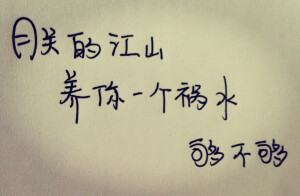 朕的江山
养你一个祸水
够不够